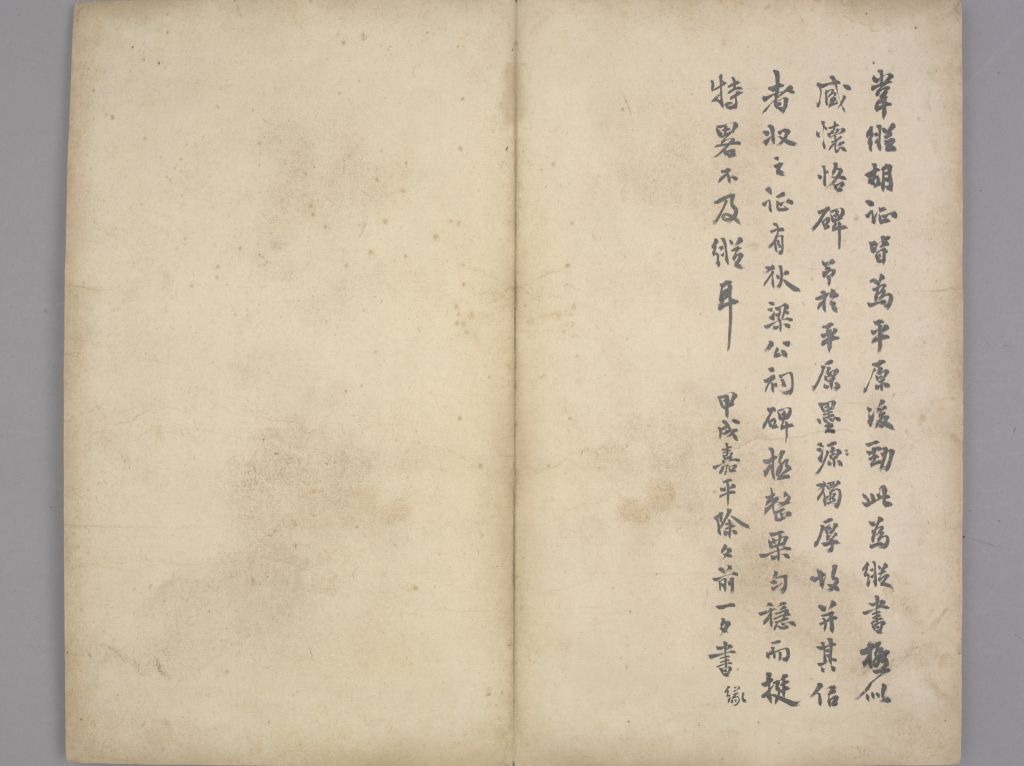 韋縱胡証皆為平原後勁此為縱書極似
臧懷恪碑弟於平原墨源獨厚故并其佀
者収之証有狄梁公祠碑極整栗匀穩而挺
特畧不及縱耳
甲戌嘉平除夕前一夕書